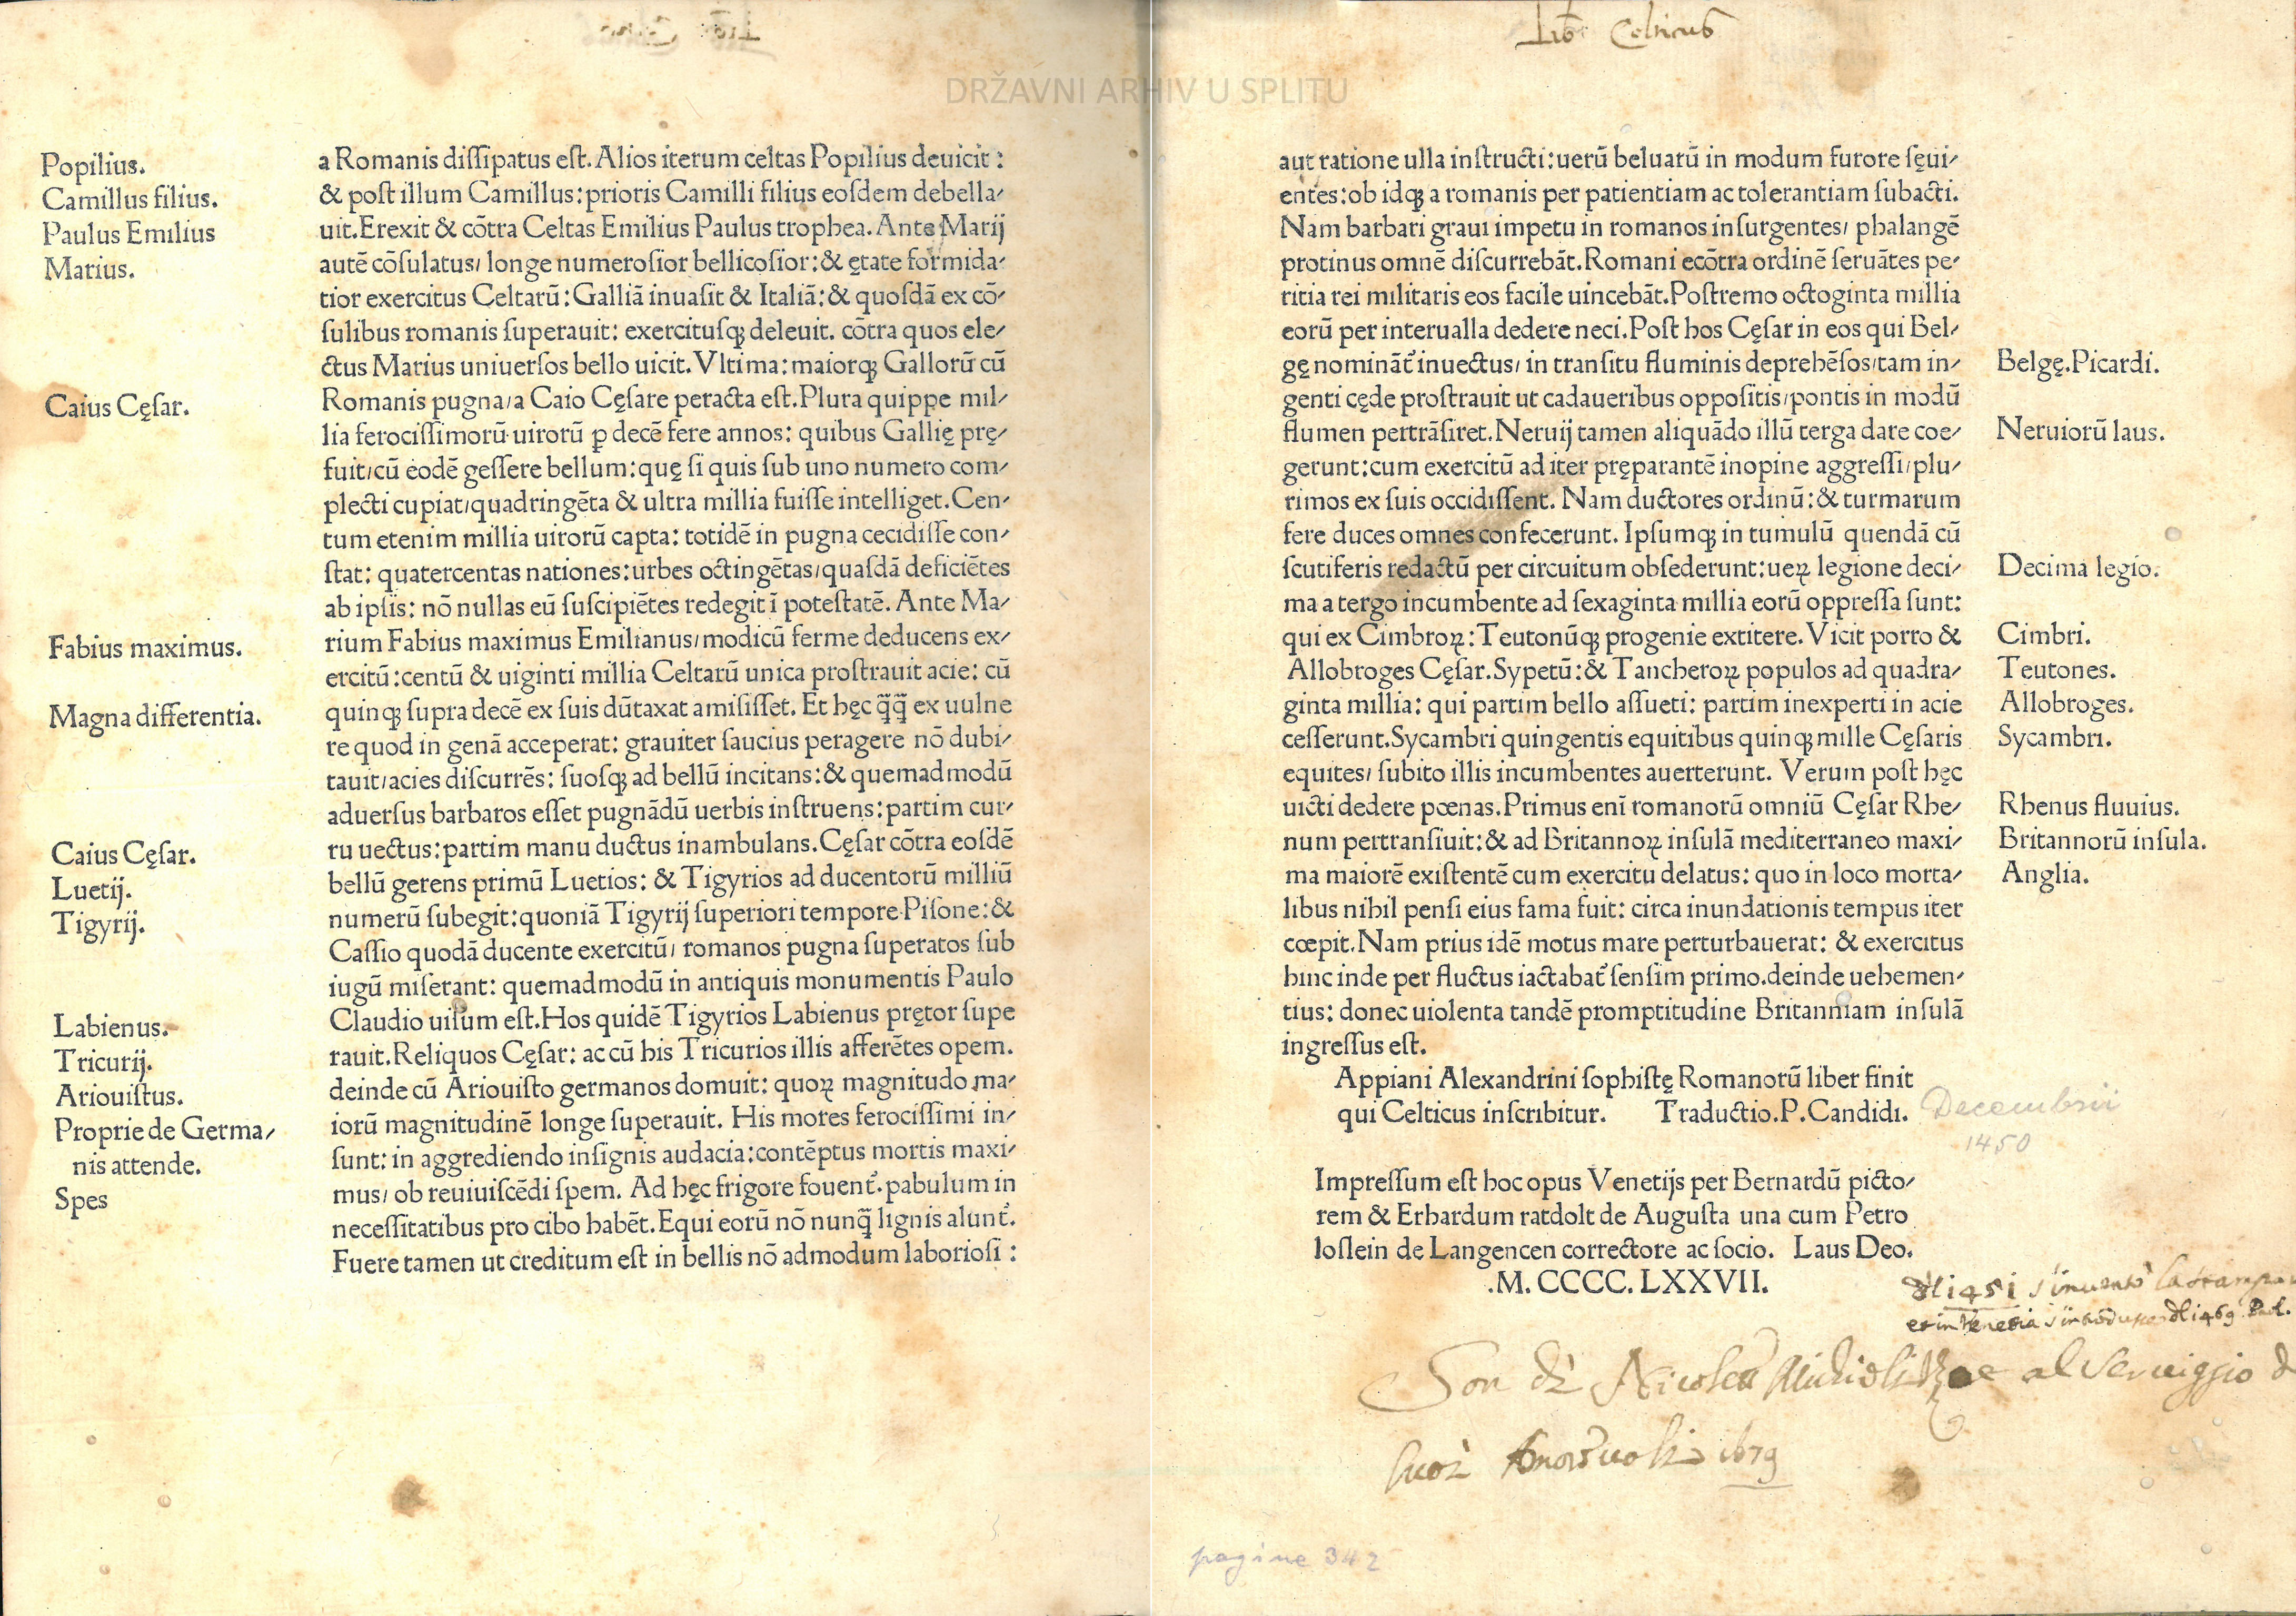 Lib. Celticus
DRŽAVNI ARHIV U SPLITU
Popilius.
Camillus filius.
Paulus Emilius
Marius.
Caius Cęſar.
Fabius maximus.
Magna differentia.
Caius Cęſar.
Luetij.
Tigyrij.
Labienus.
Tricurij.
Ariouiſtus.
Proprie de Germa/
nis attende.
Spes
a Romanis diſſipatus eſt. Alios iterum celtas Popilius deuicit:
& poſt illum Camillus: prioris Camilli filius eoſdem debella/
uit. Erexit & cõtra Celtas Emilius Paulus trophea. Ante Marij
autẽ cõſulatus/ longe numeroſior bellicoſior: & ętate formida/
tior exercitus Celtarũ: Galliã inuaſit & Italiã: & quoſdã ex cõ/
ſulibus romanis ſuperauit: exercituſqꝫ deleuit. cõtra quos ele/
ctus Marius uniuerſos bello uicit. Vltima: maiorqꝫ Gallorũ cũ
Romanis pugna/a Caio Cęſare peracta eſt. Plura quippe mil/
lia ferociſſimorũ uirorũ ꝑ decẽ fere annos: quibus Gallię prę/
fuit/cũ eodẽ geſſere bellum: quę ſi quis ſub uno numero com/
plecti cupiat/quadringẽta & ultra millia fuiſſe intelliget. Cen/
tum etenim millia uirorũ capta: totidẽ in pugna cecidiſſe con/
ſtat: quatercentas nationes: urbes octingẽtas/quaſdã deficiẽtes
ab ipſis: nõ nullas eũ ſuſcipiẽtes redegit ĩ poteſtatẽ. Ante Ma/
rium Fabius maximus Emilianus/modicũ ferme deducens ex/
ercitũ: centũ & uiginti millia Celtarũ unica proſtrauit acie: cũ
quinqꝫ ſupra decẽ ex ſuis dũtaxat amiſiſſet. Et hęc q̃q̃ ex uulne
re quod in genã acceperat: grauiter ſaucius peragere nõ dubi/
tauit/acies diſcurrẽs: ſuoſqꝫ ad bellũ incitans: & quemadmodũ
aduerſus barbaros eſſet pugnãdũ uerbis inſtruens: partim cur/
ru uectus: partim manu ductus inambulans. Cęſar cõtra eoſdẽ
bellũ gerens primũ Luetios: & Tigyrios ad ducentorũ milliũ
numerũ ſubegit: quoniã Tigyrij ſuperiori tempore Piſone: &
Caſſio quodã ducente exercitũ/ romanos pugna ſuperatos ſub
iugũ miſerant: quemadmodũ in antiquis monumentis Paulo
Claudio uiſum eſt. Hos quidẽ Tigyrios Labienus prętor ſupe
rauit. Reliquos Cęſar: ac cũ his Tricurios illis afferẽtes opem.
deinde cũ Ariouiſto germanos domuit: quoꝝ magnitudo ma/
iorũ magnitudinẽ longe ſuperauit. His mores ferociſſimi in/
ſunt: in aggrediendo inſignis audacia: contẽptus mortis maxi/
mus/ ob reuiuiſcẽdi ſpem. Ad hęc frigore fouent᷑. pabulum in
neceſſitatibus pro cibo habẽt. Equi eorũ nõ nunq̃ lignis alunt᷑.
Fuere tamen ut creditum eſt in bellis nõ admodum laborioſi:
aut ratione ulla inſtructi: uerũ beluarũ in modum furore ſęui/
entes: ob idqꝫ a romanis per patientiam ac tolerantiam ſubacti.
Nam barbari graui impetu in romanos inſurgentes/ phalangẽ
protinus omnẽ diſcurrebãt. Romani ecõtra ordinẽ ſeruãtes pe/
ritia rei militaris eos facile uincebãt. Poſtremo octoginta millia
eorũ per interualla dedere neci. Poſt hos Cęſar in eos qui Bel/
gę nominãt᷑ inuectus/ in tranſitu fluminis deprehẽſos/tam in/
genti cęde proſtrauit ut cadaueribus oppoſitis/pontis in modũ
flumen pertrãſiret. Neruij tamen aliquãdo illũ terga dare coe/
gerunt: cum exercitũ ad iter pręparantẽ inopine aggreſſi/plu/
rimos ex ſuis occidiſſent. Nam ductores ordinũ: & turmarum
fere duces omnes confecerunt. Ipſumqꝫ in tumulũ quendã cũ
ſcutiferis redactũ per circuitum obſederunt: ueꝝ legione deci/
ma a tergo incumbente ad ſexaginta millia eorũ oppreſſa ſunt:
qui ex Cimbroꝝ: Teutonũqꝫ progenie extitere. Vicit porro &
Allobroges Cęſar. Sypetũ: & Tancheroꝝ populos ad quadra/
ginta millia: qui partim bello aſſueti: partim inexperti in acie
ceſſerunt. Sycambri quingentis equitibus quinqꝫ mille Cęſaris
equites/ ſubito illis incumbentes auerterunt. Verum poſt hęc
uicti dedere pœnas. Primus enĩ romanorũ omniũ Cęſar Rhe/
num pertranſiuit: & ad Britannoꝝ inſulã mediterraneo maxi/
ma maiorẽ exiſtentẽ cum exercitu delatus: quo in loco morta/
libus nihil penſi eius fama fuit: circa inundationis tempus iter
cœpit. Nam prius idẽ motus mare perturbauerat: & exercitus
hinc inde per fluctus iactabat᷑ ſenſim primo. deinde uehemen/
tius: donec uiolenta tandẽ promptitudine Britanniam inſulã
ingreſſus eſt.
Appiani Alexandrini ſophiſtę Romanorũ liber finit
qui Celticus inſcribitur. Traductio. P. Candidi. Decembrii
1450
Impreſſum eſt hoc opus Venetijs per Bernardũ picto/
rem & Erhardum ratdolt de Auguſta una cum Petro
loſlein de Langencen correctore ac ſocio. Laus Deo.
.M. CCCC. LXXVII.
Belgę. Picardi.
Neruiorũ laus.
Decima legio.
Cimbri.
Teutones.
Allobroges.
Sycambri.
Rhenus fluuius.
Britannorũ inſula.
Anglia.
1451 s'inuentò la stampa
et in Venetia s'introdusse 1469
Son di Nicolò al Seruiggio
suoi 1679
pagine 342